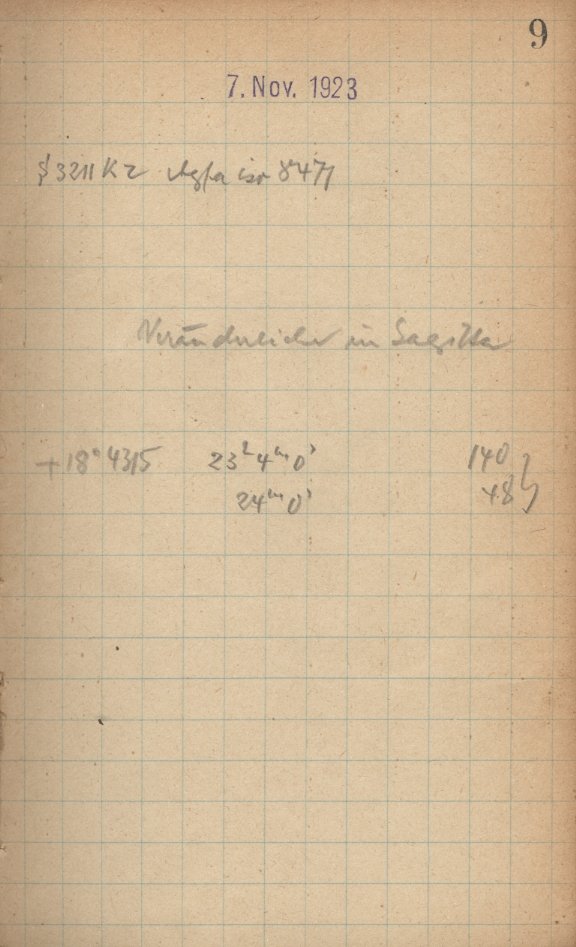 9
7. Nov. 1923
S 3211 K 2 Agfa iso 8471
Veränderlicher in Sagitta
+18° 4315 23ʰ 4ᵐ 0ˢ 140
24ᵐ 0ˢ 48